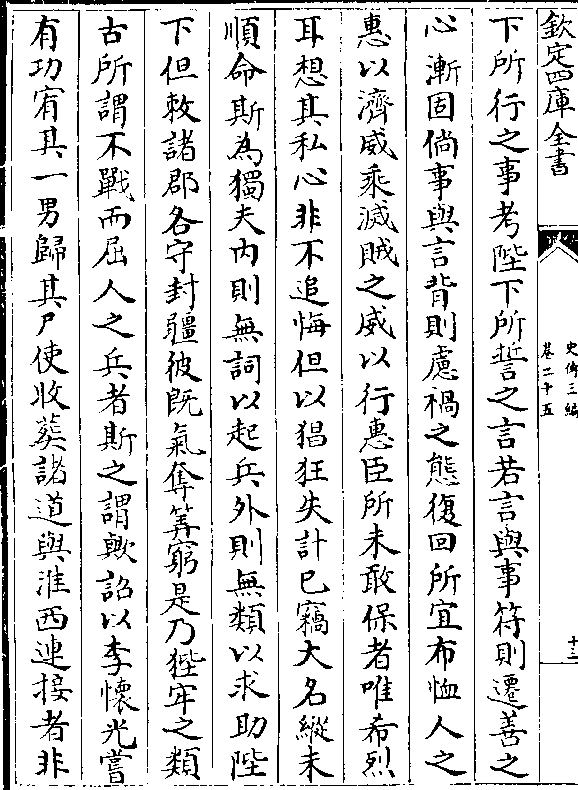 欽定四庫全書
史傳三編
卷二十五
十二
下所行之事考陛下所誓之言若言與事符則遷善之
心漸固倘事與言背則慮禍之態復回所宜布恤人之
惠以濟威乘滅賊之威以行惠臣所未敢保者唯希烈
耳想其私心非不追悔但以猖狂失計已竊大名縱未
順命斯為獨夫内則無詞以起兵外則無類以求助陛
下但敕諸郡各守封疆彼既氣奪筭窮是乃狴牢之類
古所謂不戰而屈人之兵者斯之謂歟詔以李懷光嘗
有功宥其一男歸其尸使收葬諸道與淮西連接者非